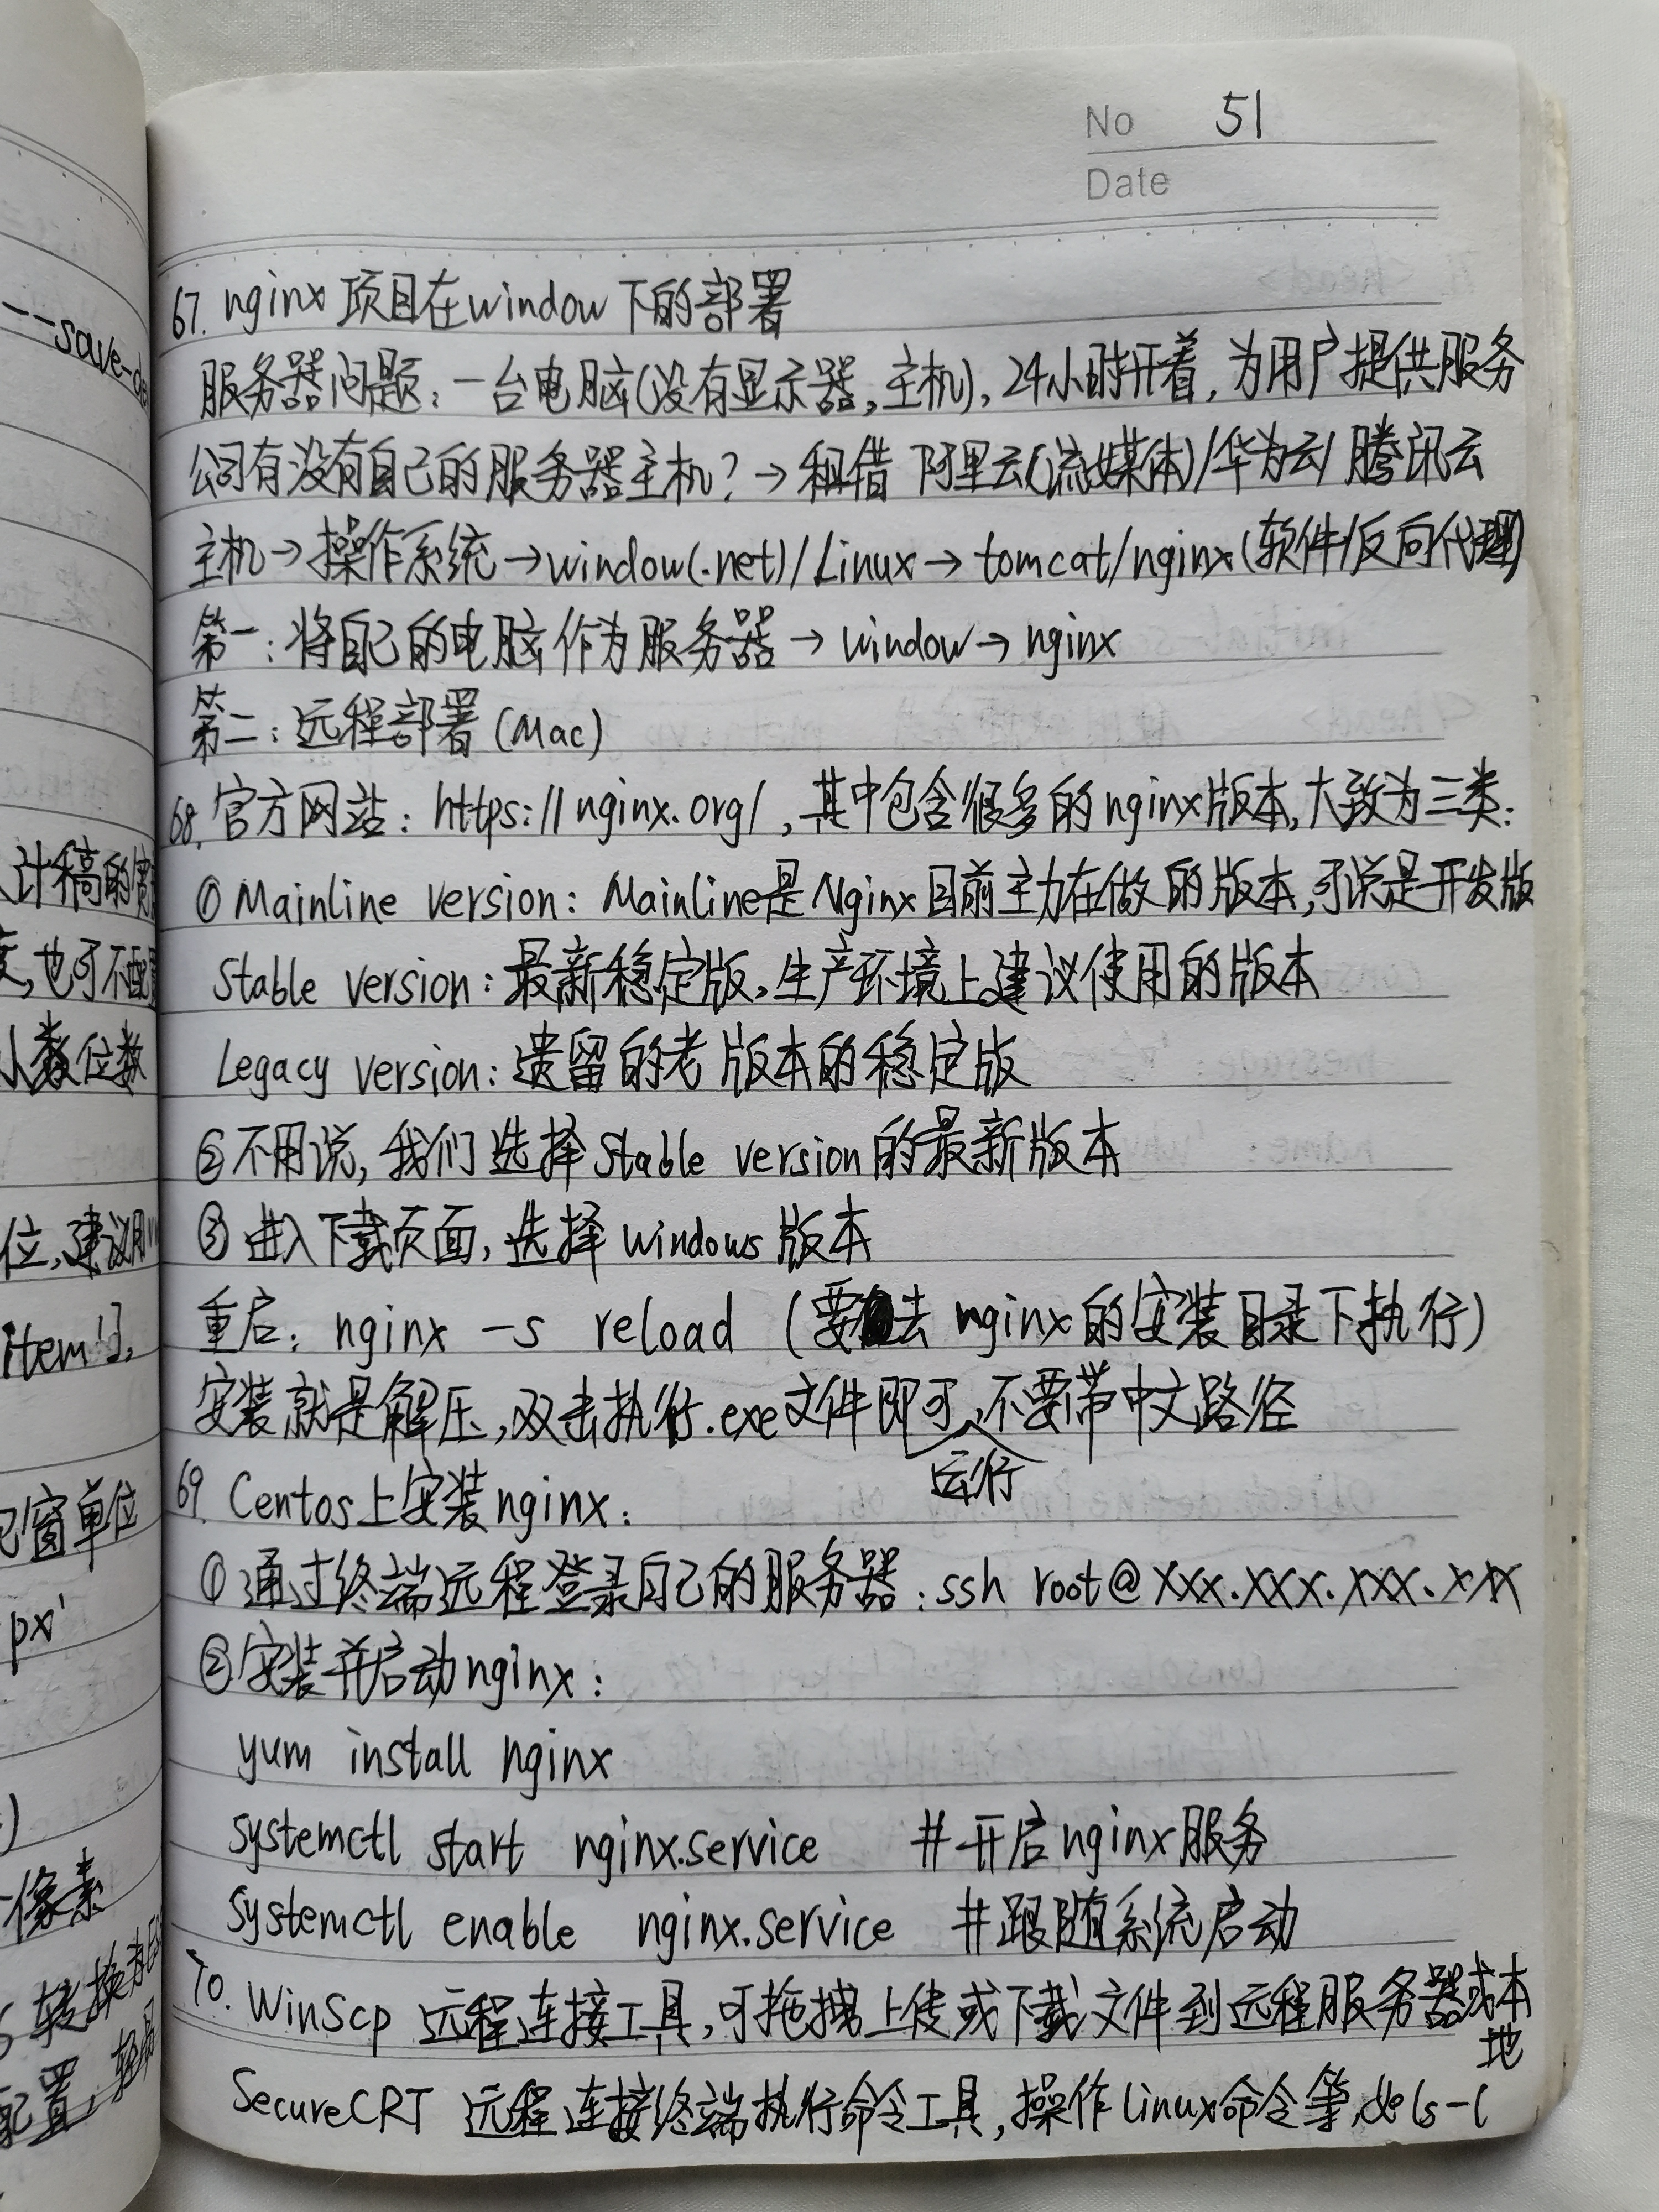 --save-d
计稿的宽
度,也可不配置
小数位数
位,建议用
item'],
窗单位
px'
像素
转换为
配置,
No 51
Date
67. nginx 项目在window下的部署
服务器问题:一台电脑(没有显示器,主机),24小时开着,为用户提供服务
公司有没有自己的服务器主机?→租借 阿里云(流媒体)/华为云/腾讯云
主机→操作系统→window(.net)/Linux→tomcat/nginx(软件/反向代理)
第一:将自己的电脑作为服务器→window→nginx
第二:远程部署(Mac)
68. 官方网站:https://nginx.org/,其中包含很多的nginx版本,大致为三类:
① Mainline version: Mainline是Nginx目前主力在做的版本,可说是开发版
Stable version:最新稳定版,生产环境上建议使用的版本
Legacy version:遗留的老版本的稳定版
②不用说,我们选择Stable version的最新版本
③进入下载页面,选择windows版本
重启:nginx -s reload (要去nginx的安装目录下执行)
安装就是解压,双击执行.exe文件即可运行,不要带中文路径
69. Centos上安装nginx:
①通过终端远程登录自己的服务器:ssh root@xxx.xxx.xxx.xxx
②安装并启动nginx:
yum install nginx
systemctl start nginx.service #开启nginx服务
systemctl enable nginx.service #跟随系统启动
70. WinScp 远程连接工具,可拖拽上传或下载文件到远程服务器或本地
SecureCRT 远程连接终端执行命令工具,操作linux命令等,如ls-l